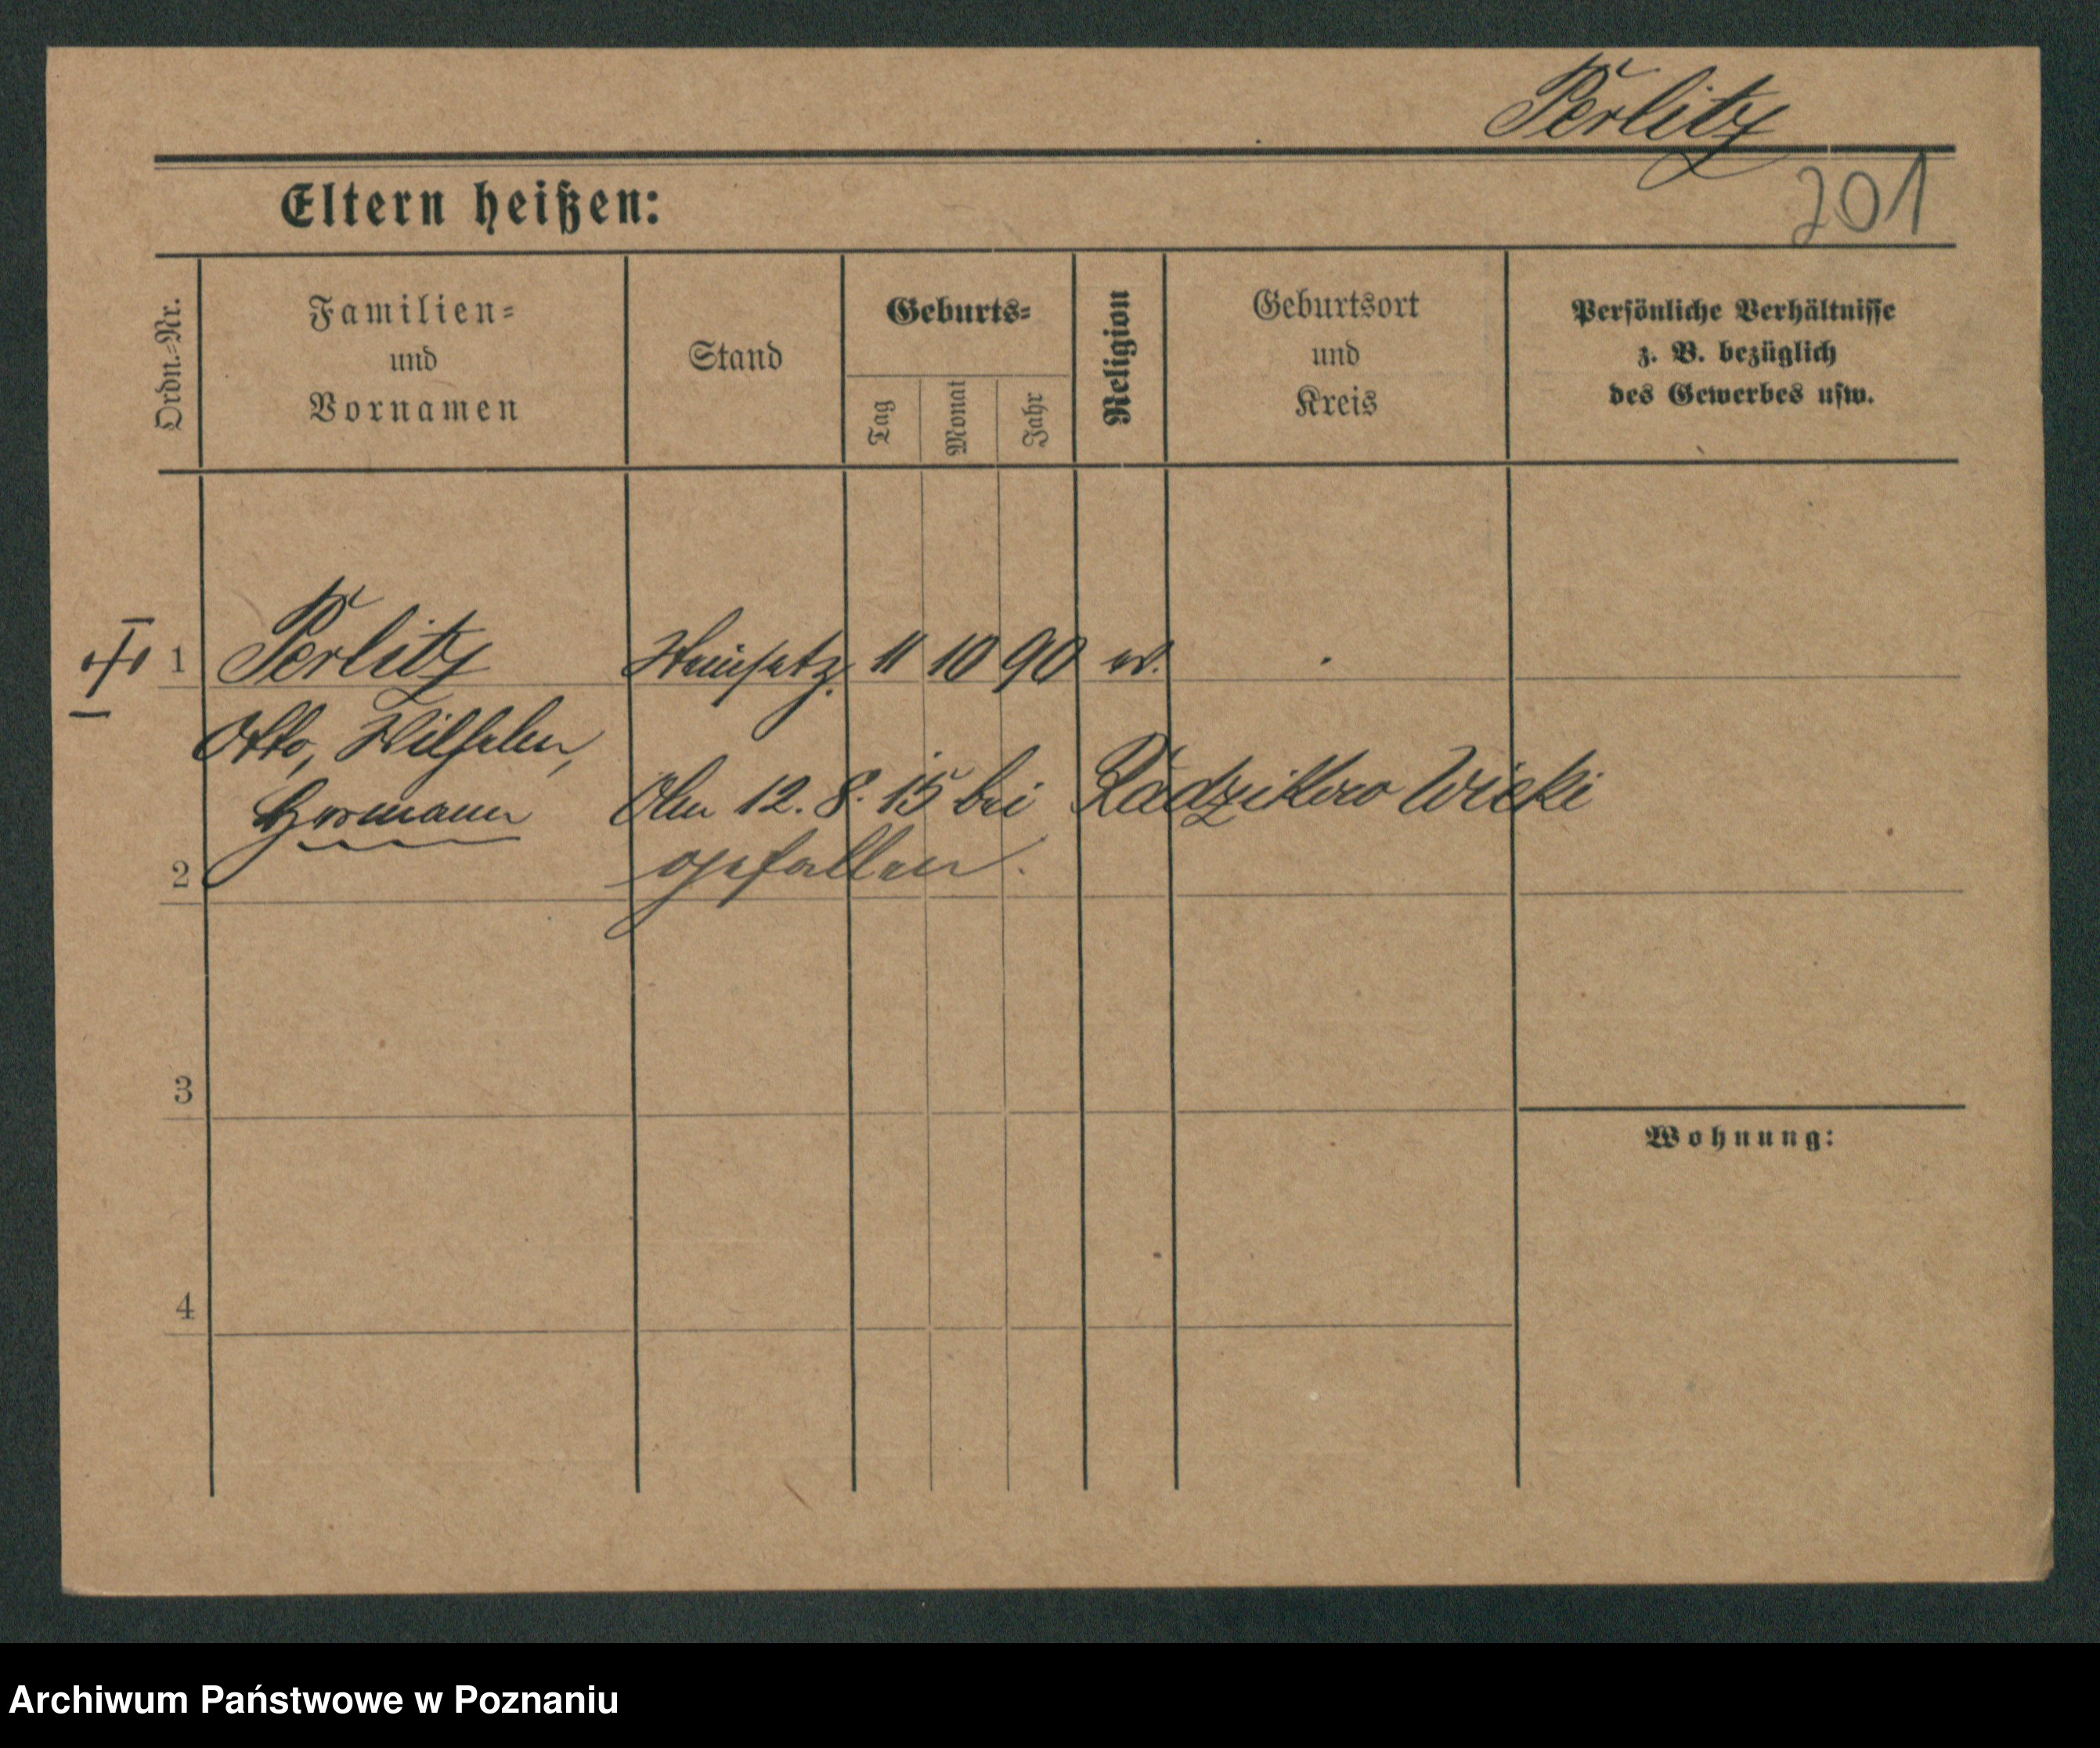 Perlitz
201
Eltern heißen:
Ordn.-Nr.
Familien-
und
Vornamen
Stand
Geburts-
Tag
Monat
Jahr
Religion
Geburtsort
und
Kreis
Persönliche Verhältnisse
z. B. bezüglich
des Gewerbes usw.
1 Perlitz 11 10 90 ev.
Otto, Wilhelm,
Hermann
Am 12. 8. 15 bei Radzikow Wielki
2 gefallen.
3
Wohnung:
4
Archiwum Państwowe w Poznaniu